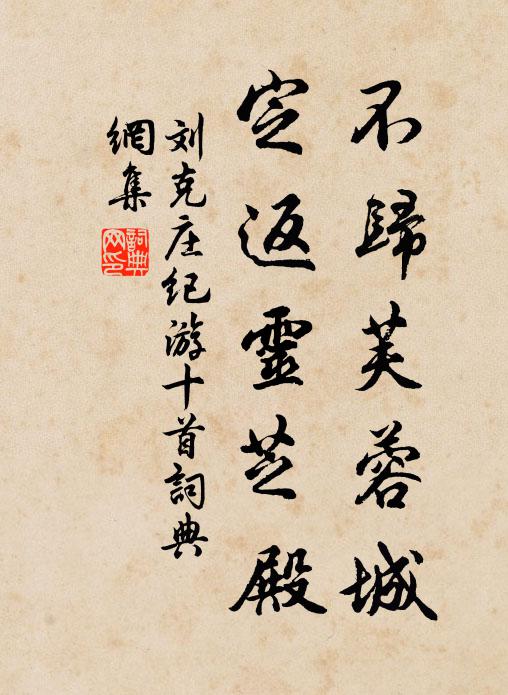 不歸芙蓉城
定返靈芝殿
刘克庄纪游十首詞典
網集
詞典
网印